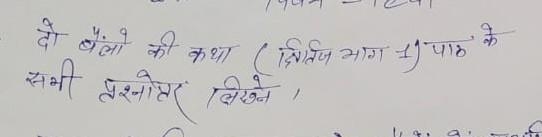 दो बैलों की कथा ( क्षितिज भाग 1) पाठ के
सभी प्रश्नोत्तर लिखने ।